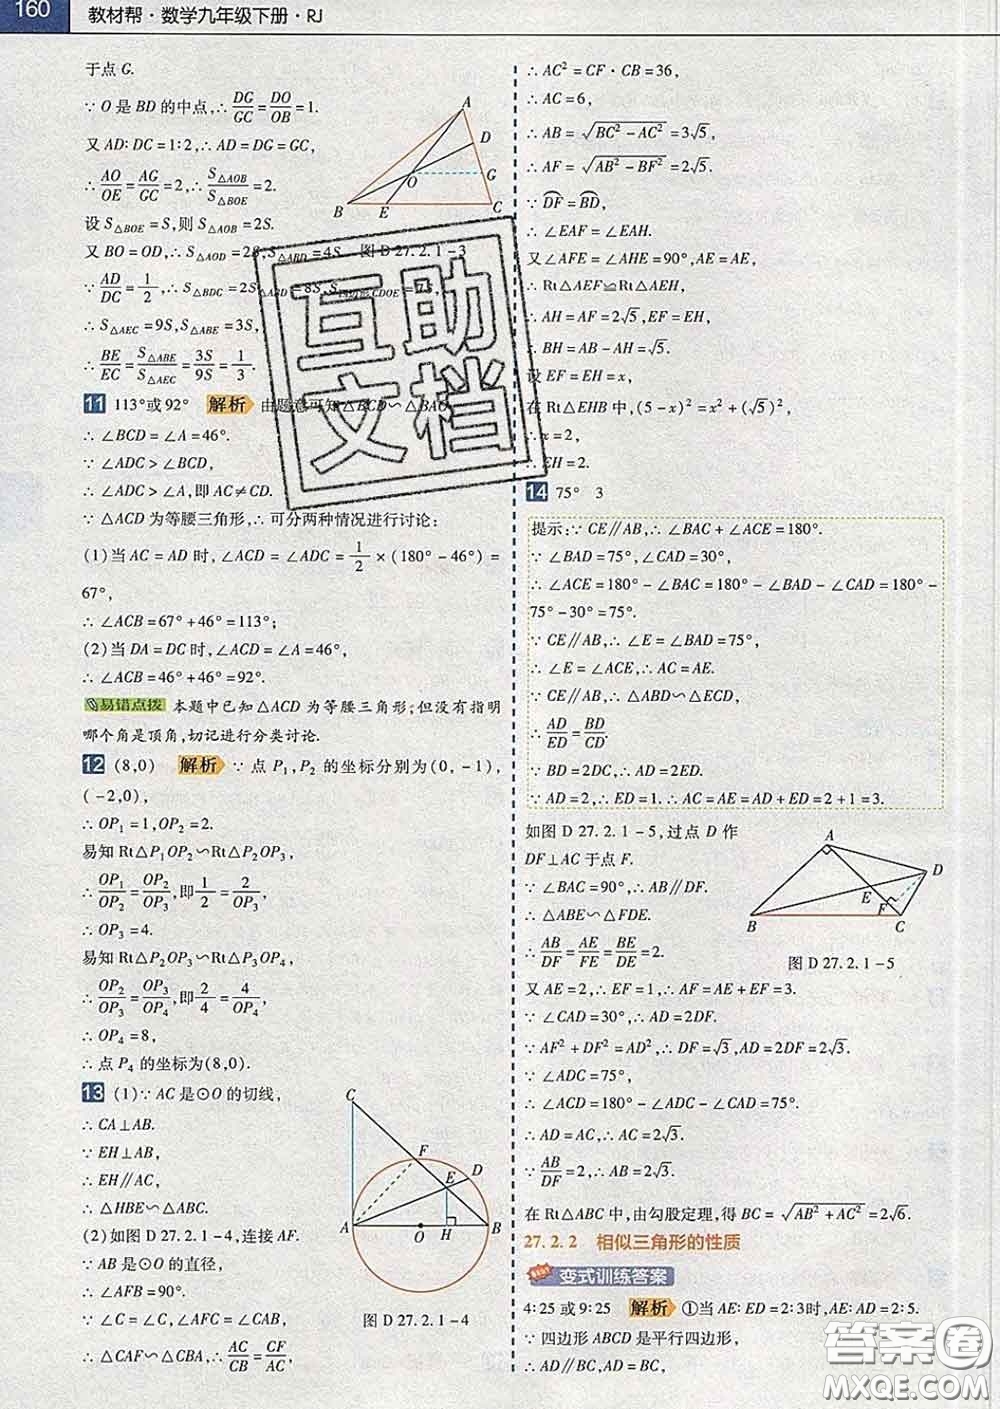 160 教材帮·数学九年级下册·RJ
于点 G.
∵ O 是 BD 的中点,∴ DG/GC = DO/OB = 1.
又 AD∶DC = 1∶2,∴ AD = DG = GC,
∴ AO/OE = AG/GC = 2,∴ S△AOB/S△BOE = 2.
设 S△BOE = S,则 S△AOB = 2S.
又 BO = OD,∴ S△AOD = 2S,S△ABD = 4S.
∵ AD/DC = 1/2,∴ S△BDC = 2S△ABD = 8S,S四边形CDOE = 7S,
∴ S△AEC = 9S,S△ABE = 3S,
∴ BE/EC = S△ABE/S△AEC = 3S/9S = 1/3.
A
D
O
G
B
E
C
图 D 27.2.1-3
11 113°或 92° 解析 由题意可知 △BCD∽△BAC,
∴ ∠BCD = ∠A = 46°.
∵ ∠ADC > ∠BCD,
∴ ∠ADC > ∠A,即 AC ≠ CD.
∵ △ACD 为等腰三角形,∴ 可分两种情况进行讨论:
(1)当 AC = AD 时,∠ACD = ∠ADC = 1/2 × (180° - 46°) =
67°,
∴ ∠ACB = 67° + 46° = 113°;
(2)当 DA = DC 时,∠ACD = ∠A = 46°,
∴ ∠ACB = 46° + 46° = 92°.
易错点拨 本题中已知 △ACD 为等腰三角形;但没有指明
哪个角是顶角,切记进行分类讨论.
12 (8,0) 解析 ∵ 点 P1,P2 的坐标分别为(0,-1),
(-2,0),
∴ OP1 = 1,OP2 = 2.
易知 Rt△P1OP2∽Rt△P2OP3,
∴ OP1/OP2 = OP2/OP3,即 1/2 = 2/OP3,
∴ OP3 = 4.
易知 Rt△P2OP3∽Rt△P3OP4,
∴ OP2/OP3 = OP3/OP4,即 2/4 = 4/OP4,
∴ OP4 = 8,
∴ 点 P4 的坐标为(8,0).
13 (1)∵ AC 是⊙O 的切线,
∴ CA⊥AB.
∵ EH⊥AB,
∴ EH∥AC,
∴ △HBE∽△ABC.
(2)如图 D 27.2.1-4,连接 AF.
∵ AB 是⊙O 的直径,
∴ ∠AFB = 90°.
∵ ∠C = ∠C,∠AFC = ∠CAB,
∴ △CAF∽△CBA,∴ CA/CB = CF/AC,
C
F
D
E
A
O
H
B
图 D 27.2.1-4
∴ AC² = CF·CB = 36,
∴ AC = 6,
∴ AB = √(BC² - AC²) = 3√5,
∴ AF = √(AB² - BF²) = 2√5.
∵ DF⌒ = BD⌒,
∴ ∠EAF = ∠EAH.
又 ∠AFE = ∠AHE = 90°,AE = AE,
∴ Rt△AEF≌Rt△AEH,
∴ AH = AF = 2√5,EF = EH,
∴ BH = AB - AH = √5.
设 EF = EH = x,
在 Rt△EHB 中,(5 - x)² = x² + (√5)²,
∴ x = 2,
∴ EH = 2.
14 75° 3
提示:∵ CE∥AB,∴ ∠BAC + ∠ACE = 180°.
∵ ∠BAD = 75°,∠CAD = 30°,
∴ ∠ACE = 180° - ∠BAC = 180° - ∠BAD - ∠CAD = 180° -
75° - 30° = 75°.
∵ CE∥AB,∴ ∠E = ∠BAD = 75°,
∴ ∠E = ∠ACE,∴ AC = AE.
∵ CE∥AB,∴ △ABD∽△ECD,
∴ AD/ED = BD/CD.
∵ BD = 2DC,∴ AD = 2ED.
∵ AD = 2,∴ ED = 1.∴ AC = AE = AD + ED = 2 + 1 = 3.
如图 D 27.2.1-5,过点 D 作
DF⊥AC 于点 F.
∵ ∠BAC = 90°,∴ AB∥DF.
∴ △ABE∽△FDE.
∴ AB/DF = AE/FE = BE/DE = 2.
又 AE = 2,∴ EF = 1,∴ AF = AE + EF = 3.
A
D
E
F
B
C
图 D 27.2.1-5
∵ ∠CAD = 30°,∴ AD = 2DF.
∵ AF² + DF² = AD²,∴ DF = √3,AD = 2DF = 2√3.
∵ ∠ADC = 75°,
∴ ∠ACD = 180° - ∠ADC - ∠CAD = 75°.
∴ AD = AC,∴ AC = 2√3.
∵ AB/DF = 2,∴ AB = 2√3.
在 Rt△ABC 中,由勾股定理,得 BC = √(AB² + AC²) = 2√6.
27.2.2 相似三角形的性质
变式训练答案
4∶25 或 9∶25 解析 ①当 AE∶ED = 2∶3时,AE∶AD = 2∶5.
∵ 四边形 ABCD 是平行四边形,
∴ AD∥BC,AD = BC,
互助
文档
答案圈
MXQE.COM